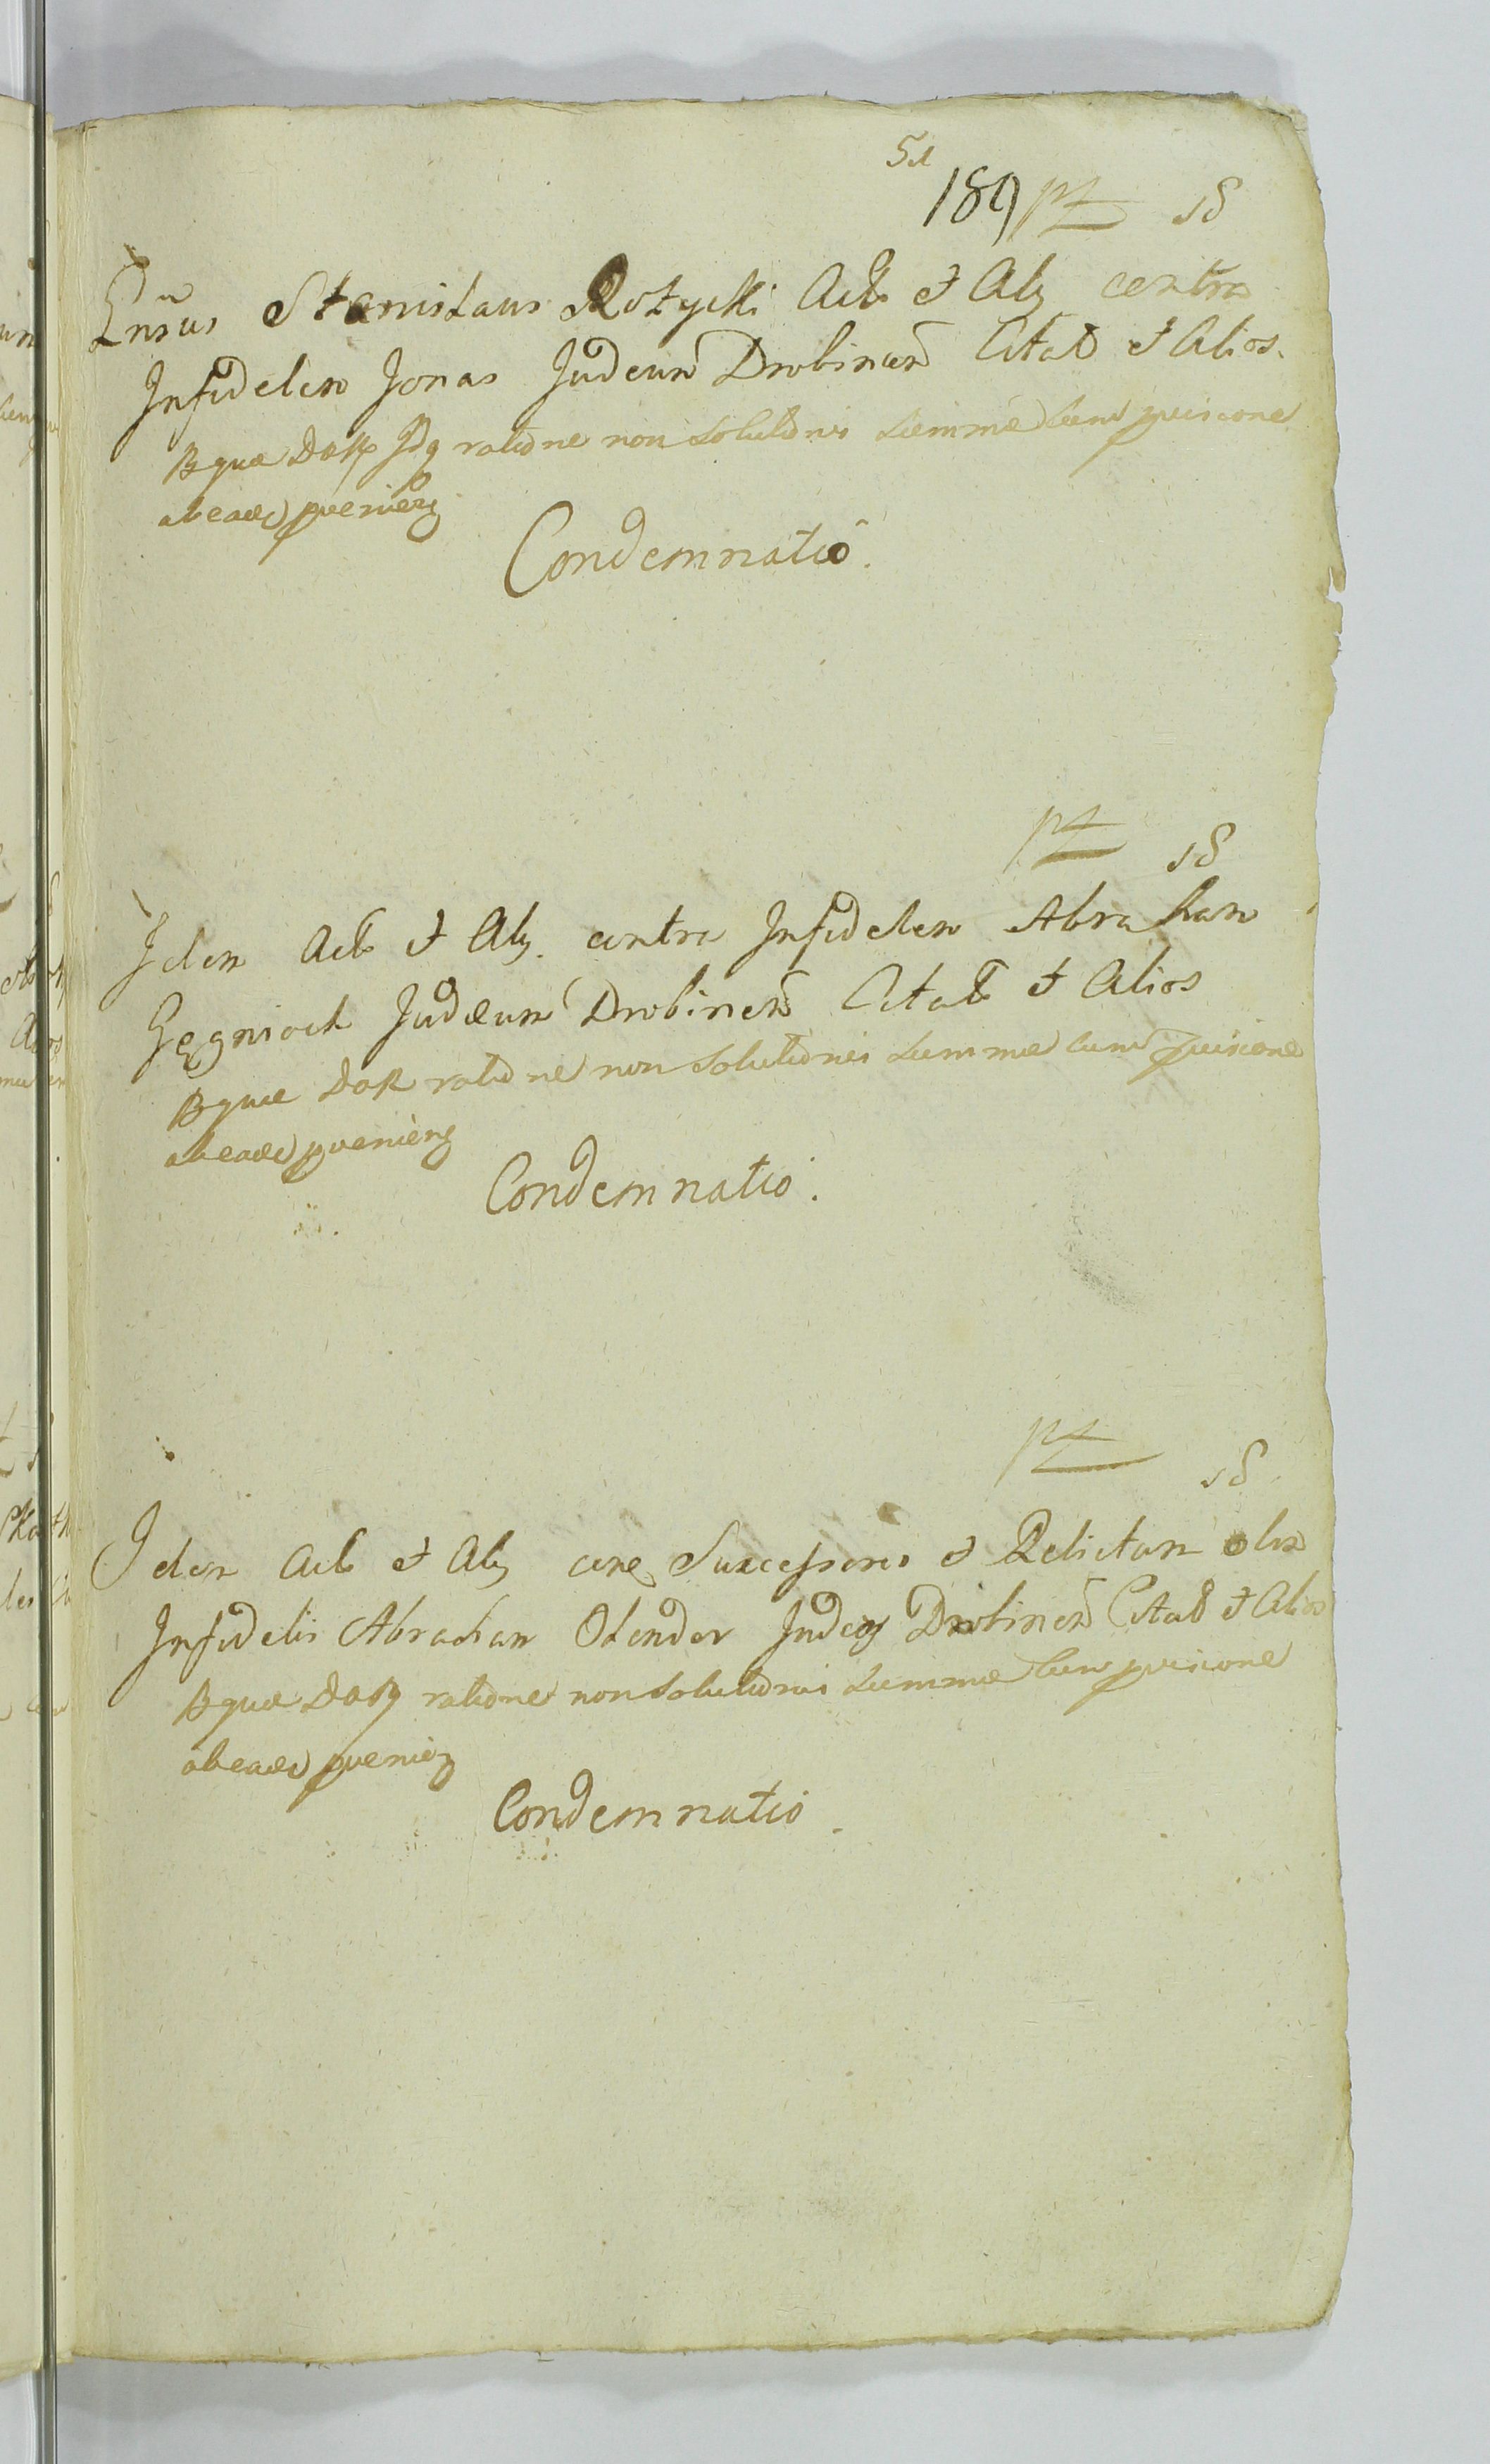 189 pt 18
Gnsus Stanislaus Rożycki Act et Alij contra
Infidelem Jonas Judeum Drobinen Citat et Alios.
ratione non Solutionis Summæ cum pvisione
ab eadem pvenien
Condemnatio.
pt 18
Idem Act et Alij contra Infidelem Abraham
Gęgniock Judæum Drobinen Citat et Alios
ratione non Solutionis Summæ cum pvisione
ab eadem pvenien
Condemnatio.
pt 18
Idem Act et Alij cone Successores et Relictam olim
Infidelis Abraham Olender Judæi Drobinen Citat et Alios
ratione non Solutionis Summæ cum pvisione
ab eadem pvenien
Condemnatio.